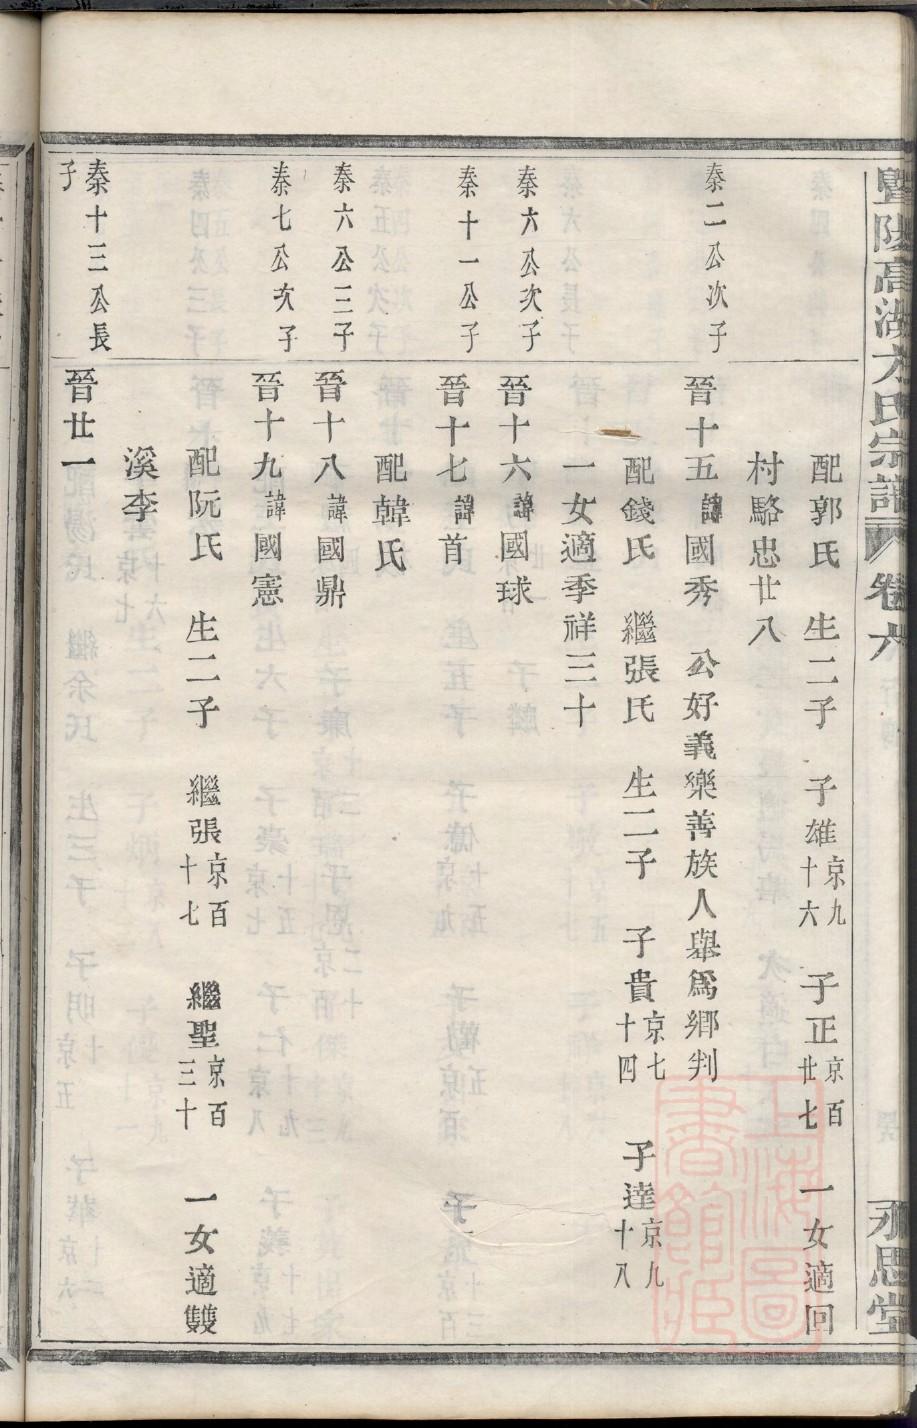 暨陽高湖方氏宗譜 卷六 永思堂
配郭氏 生二子 子雄京九十六 子正京百廿七 一女適回
村駱忠廿八
秦二公次子
晉十五諱國秀 公好義樂善族人舉爲鄉判
配錢氏 繼張氏 生二子 子貴京七十四 子達京九十八
一女適季祥三十
秦六公次子
晉十六諱國球
秦十一公子
晉十七諱首
配韓氏
秦六公三子
晉十八諱國鼎
秦七公次子
晉十九諱國憲
配阮氏 生二子 繼張京百十七 繼聖京百三十 一女適雙
溪李
秦十三公長子
晉廿一